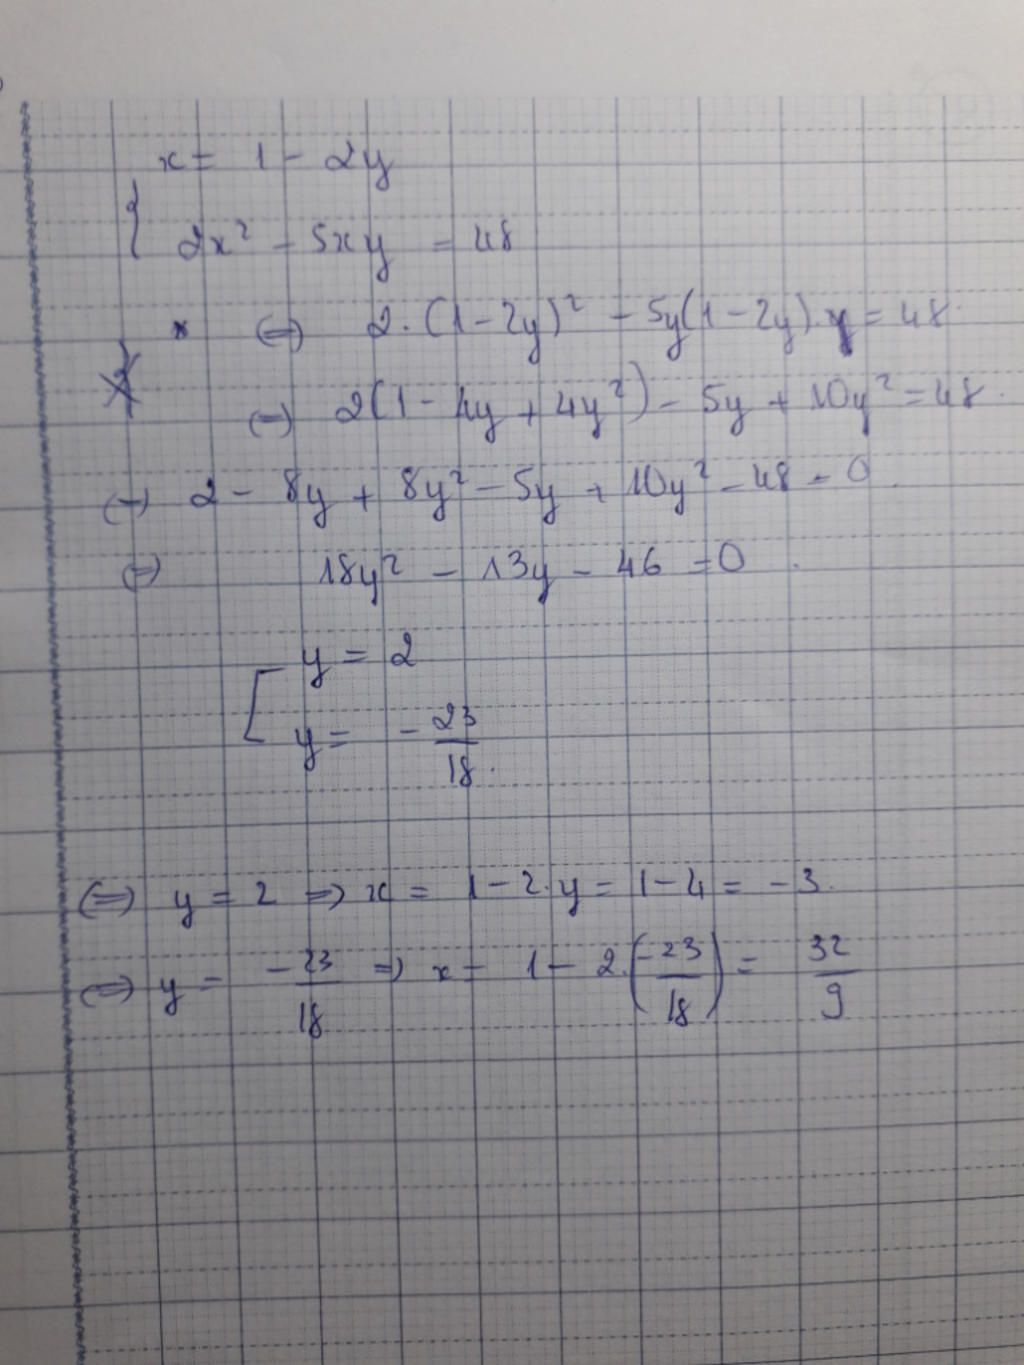 x = 1 - 2y
{ 2x² - 5xy = 48
* (=) 2.(1-2y)² - 5y(1-2y). = 48.
(=) 2(1 - 4y + 4y²) - 5y + 10y² = 48.
(=) 2 - 8y + 8y² - 5y + 10y² - 48 = 0.
(=) 18y² - 13y - 46 = 0.
[ y = 2
y = -23/18.
(=) y = 2 => x = 1 - 2.y = 1 - 4 = -3.
(=) y = -23/18 => x = 1 - 2.(-23/18) = 32/9